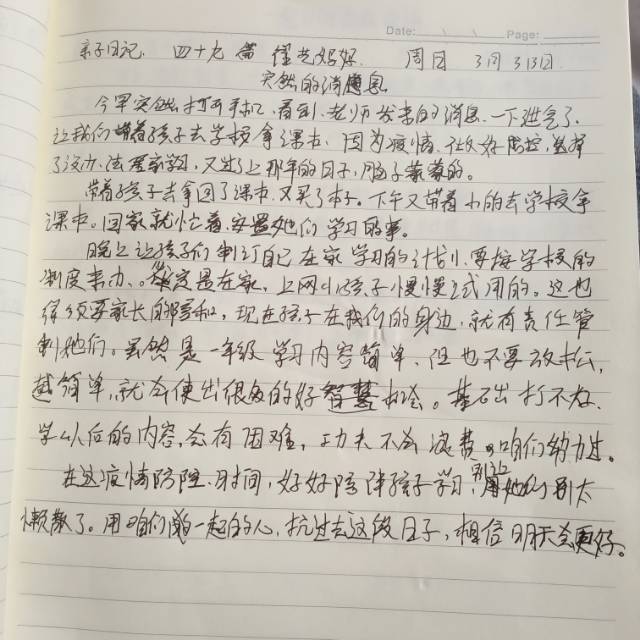 Date: Page:
亲子日记 四十九篇 佳艺妈妈 周日 3月13日
突然的消息
今早突然打开手机,看到老师发来的消息,一下泄气了
让我们带着孩子去学校拿课本,因为疫情,做好防控,选择
了这办法居家学习,又过上那年的日子,脑子蒙蒙的。
带着孩子去拿回了课本,又买了本子。下午又带着小的去学校拿
课本。回家就忙着安置她们学习的事。
晚上让孩子们制订自己在家学习的计划,要按学校的
制度来办。毕竟是在家,上网课孩子慢慢适用的。这也
必须要家长的,现在孩子在我们的身边,就有责任管
制她们。虽然是一年级学习内容简单,但也不要放松,
越简单,就会使出很多的好智慧机会。基石出打不好,
学以后的内容,会有困难,功夫不会浪费咱们努力过。
在这疫情防控时间,好好陪伴孩子学习,别让她们别太
懒散了。用咱们一起的心,抗过去这段日子,相信明天会更好。